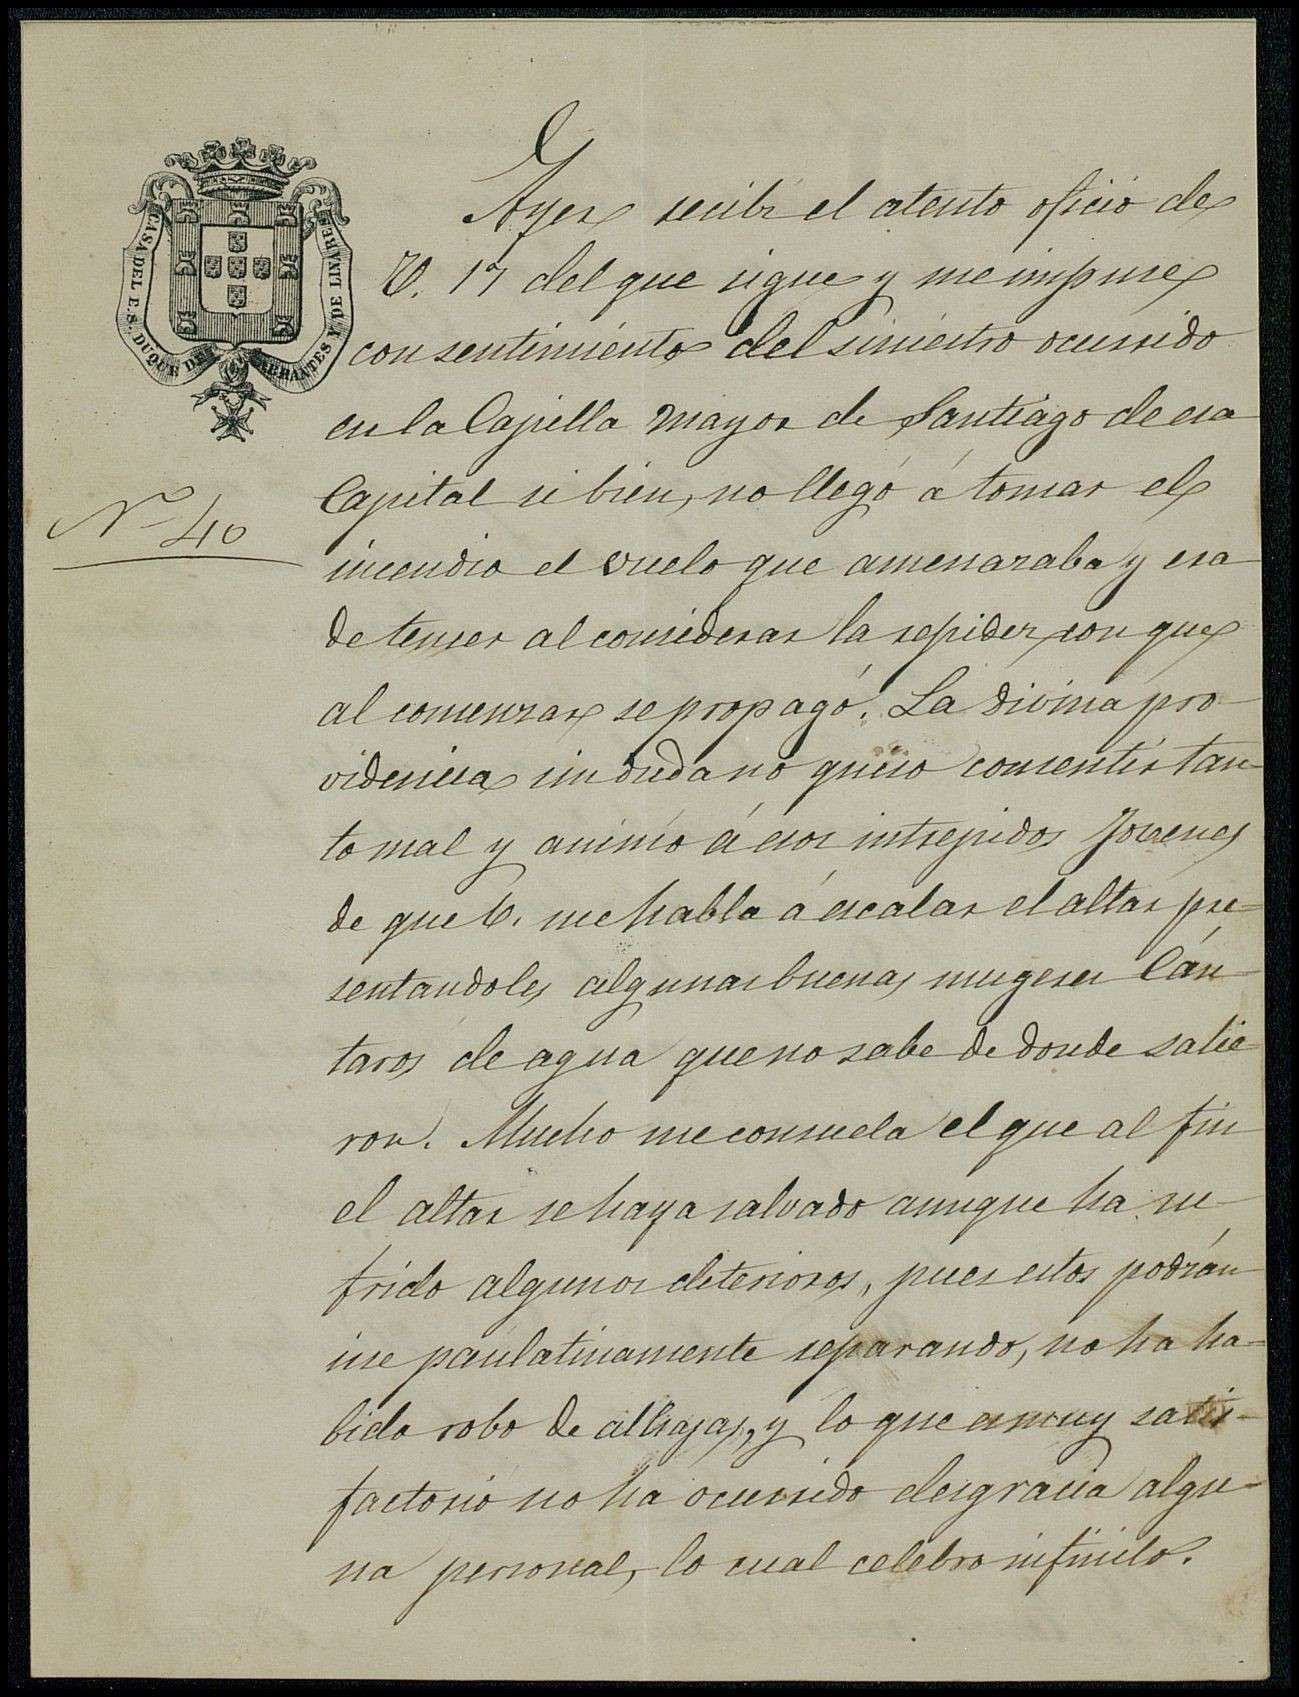 CASA DEL E. S. DUQUE DE ABRANTES Y DE LINARES
Nº 40
Ayer recibí el atento oficio de
V. 17 del que sigue y me impuse
con sentimiento del siniestro ocurrido
en la Capilla Mayor de Santiago de esa
Capital si bien, no llegó á tomar el
incendio el vuelo que amenazaba y era
de temer al considerar la repidez con que
al comenzar se propagó. La divina pro-
videncia sin duda no quiso consentir tan-
to mal y animó á esos intrepidos Jovenes
de que V. me habla á escalar el altar pre-
sentandoles algunas buenas mugeres Cán-
taros de agua que no sabe de donde salie-
ron. Mucho me consuela el que al fin
el altar se haya salvado aunque ha su-
frido algunos deterioros, pues estos podrán
irse paulatinamente reparando, no ha ha-
bido robo de alhajas, y lo que es muy satis-
factorio no ha ocurrido desgracia algu-
na personal, lo cual celebro infinito.